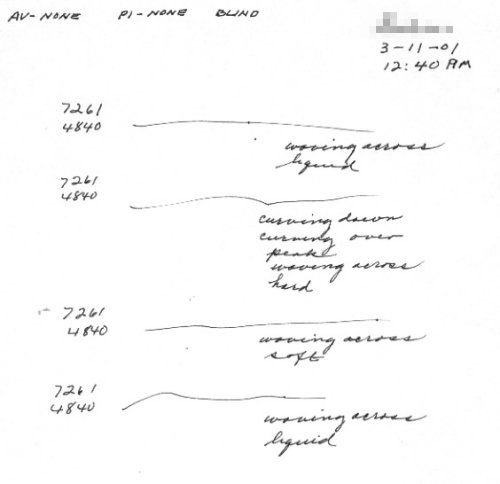 AV-NONE PI-NONE BLIND
3-11-01
12:40 PM
7261
4840
waving across
liquid
7261
4840
curving down
curving over
peak
waving across
hard
7261
4840
waving across
soft
7261
4840
waving across
liquid